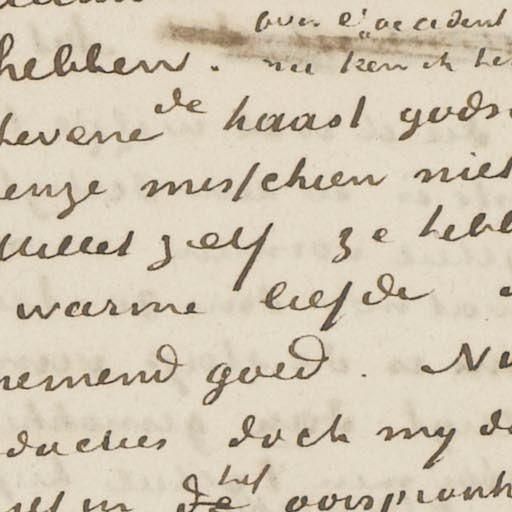 over l'accident
hebben. nu ken ik
levene de haast gods
enge misschien niet
Millet zelf ze hebb
warme liefde
nemend goed. Nu
doch my d
het oorspronk